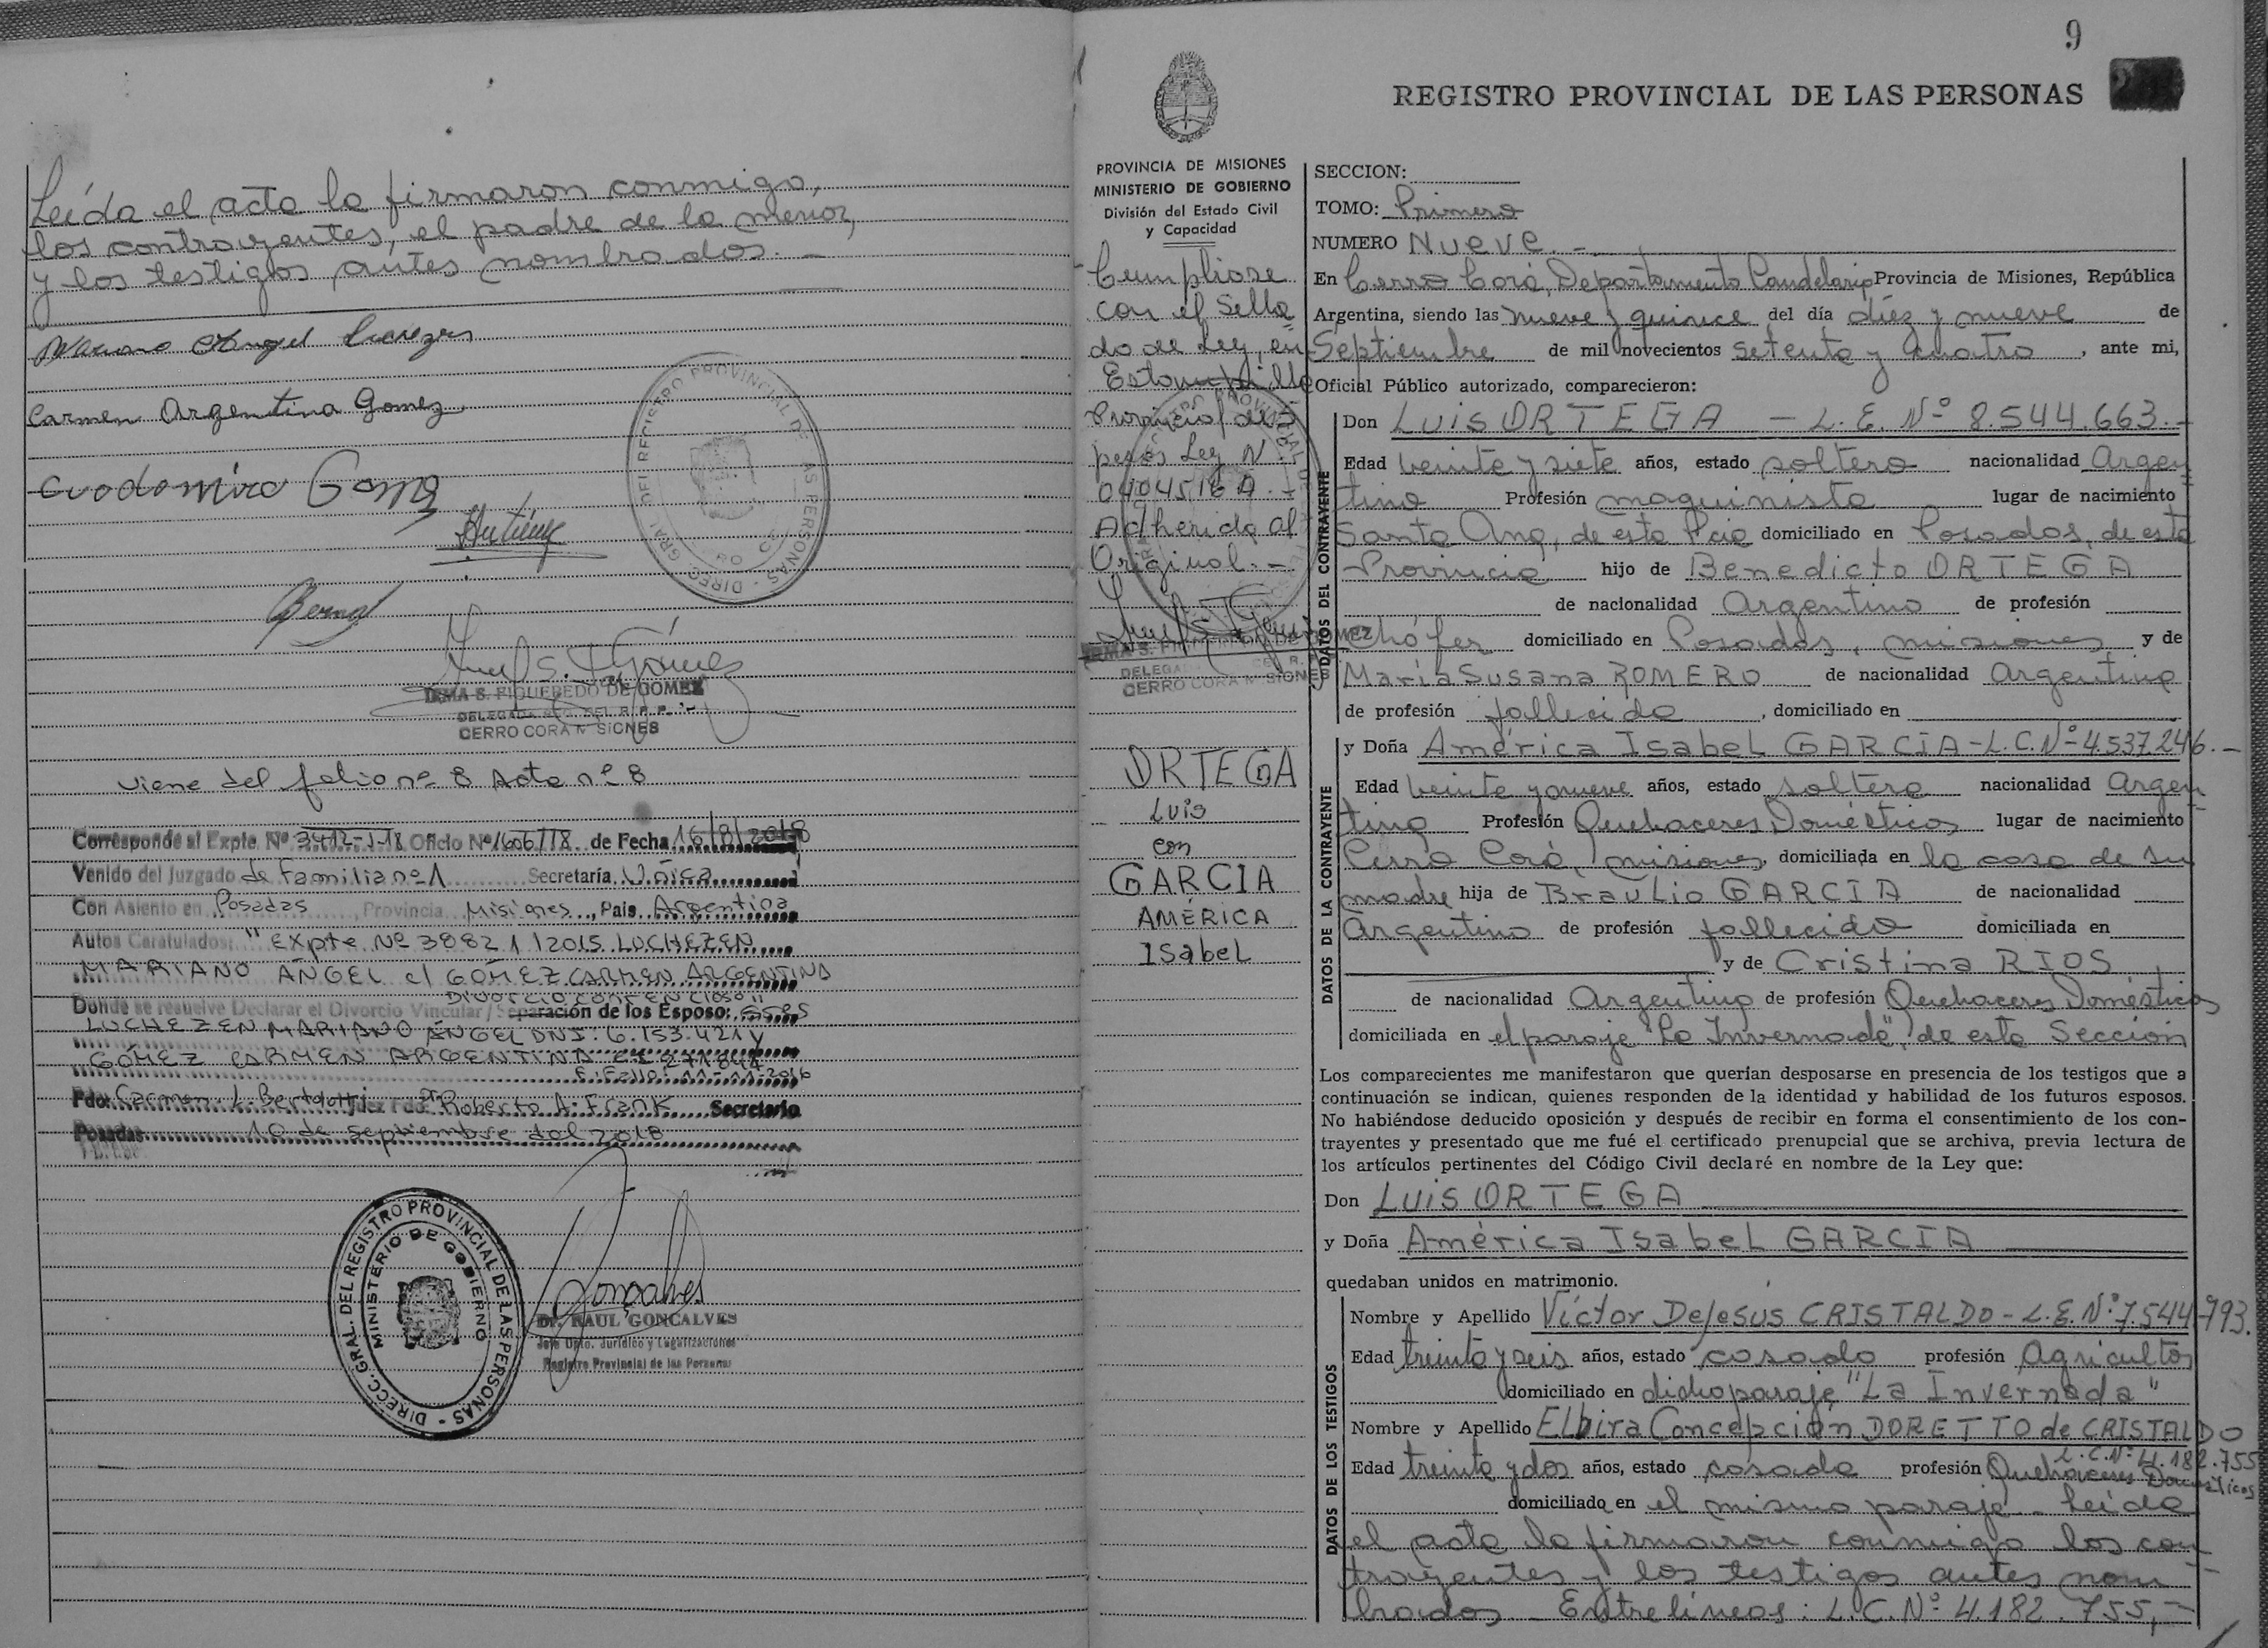 Leída el acta la firmaron conmigo,
los contrayentes, el padre de la menor,
y los testigos antes nombrados. -
Mariano Angel
Carmen Argentina Gomez
Gomez
REGISTRO PROVINCIAL DE LAS PERSONAS
IRMA S. FIGUEREDO DE GOMEZ
DELEGADA
CERRO CORA
viene del folio nº 8 Acta nº 8
Corresponde al Expte. Nº 3412-J-18 Oficio Nº 1606/18 de Fecha 16/8/2018
Venido del Juzgado de Familia nº 1 Secretaría Única
Con Asiento en Posadas, Provincia Misiones, Pais Argentina
Autos Caratulados: "Expte Nº 38821/2015 LUCHEZEN
MARIANO ÁNGEL c/ GÓMEZ CARMEN ARGENTINA
DIVORCIO CONTENCIOSO"
Donde se resuelve Declarar el Divorcio Vincular/Separación de los Esposos
LUCHEZEN MARIANO ÁNGEL DNI: 6.153.421 y
GÓMEZ CARMEN ARGENTINA
F. Fallo: 11-11-2016
Fdo: Carmen L. Bertolotti Juez Fdo: Roberto A. Frank Secretario
Posadas 10 de septiembre del 2018
DIRECC. GRAL. DEL REGISTRO PROVINCIAL DE LAS PERSONAS
MINISTERIO DE GOBIERNO
Gonçalves
Dr. RAUL GONCALVES
Jefe Dpto. Jurídico y Legalizaciones
Registro Provincial de las Personas
9
REGISTRO PROVINCIAL DE LAS PERSONAS
PROVINCIA DE MISIONES
MINISTERIO DE GOBIERNO
División del Estado Civil
y Capacidad
Cumpliose
con el Sella=
do de Ley, en
Estampilla
Provincial de
pesos Ley N
0404516 A. -
Adherida al
Original. -
DELEGADA
CERRO CORA MISIONES
ORTEGA
Luis
con
GARCIA
AMÉRICA
Isabel
SECCION:
TOMO: Primero
NUMERO Nueve. -
En Cerro Corá, Departamento Candelaria Provincia de Misiones, República
Argentina, siendo las nueve y quince del día diez y nueve de
Septiembre de mil novecientos setenta y cuatro, ante mi,
Oficial Público autorizado, comparecieron:
DATOS DEL CONTRAYENTE
Don Luis ORTEGA - L.E. Nº 8.544.663. -
Edad veinte y siete años, estado soltero nacionalidad Argen=
tina Profesión maquinista lugar de nacimiento
Santa Ana, de esta Pcia domiciliado en Posadas, de esta
Provincia hijo de Benedicto ORTEGA
de nacionalidad Argentino de profesión
chófer domiciliado en Posadas, misiones y de
María Susana ROMERO de nacionalidad Argentina
de profesión fallecida, domiciliado en
DATOS DE LA CONTRAYENTE
y Doña América Isabel GARCIA - L.C. Nº 4.537.246. -
Edad veinte y nueve años, estado soltera nacionalidad Argen=
tina Profesión Quehaceres Domésticos lugar de nacimiento
Cerro Corá, misiones, domiciliada en la casa de su
madre hija de Braulio GARCIA de nacionalidad
Argentino de profesión fallecido domiciliada en
y de Cristina RIOS
de nacionalidad Argentina de profesión Quehaceres Domésticos
domiciliada en el paraje "La Invernada", de esta Sección
Los comparecientes me manifestaron que querían desposarse en presencia de los testigos que a
continuación se indican, quienes responden de la identidad y habilidad de los futuros esposos.
No habiéndose deducido oposición y después de recibir en forma el consentimiento de los con-
trayentes y presentado que me fué el certificado prenupcial que se archiva, previa lectura de
los artículos pertinentes del Código Civil declaré en nombre de la Ley que:
Don Luis ORTEGA
y Doña América Isabel GARCIA
quedaban unidos en matrimonio.
DATOS DE LOS TESTIGOS
Nombre y Apellido Víctor DeJesus CRISTALDO - L.E. Nº 7.544.793.
Edad treinta y seis años, estado casado profesión Agricultor
domiciliado en dicho paraje "La Invernada"
Nombre y Apellido Elbira Concepción DORETTO de CRISTALDO
L.C. Nº 4.182.755
Edad treinta y dos años, estado casada profesión Quehaceres Domésticos
domiciliado en el mismo paraje - Leída
el acta la firmaron conmigo los con=
trayentes y los testigos antes nom=
brados - Entrelíneas: L.C. Nº 4.182.755, -